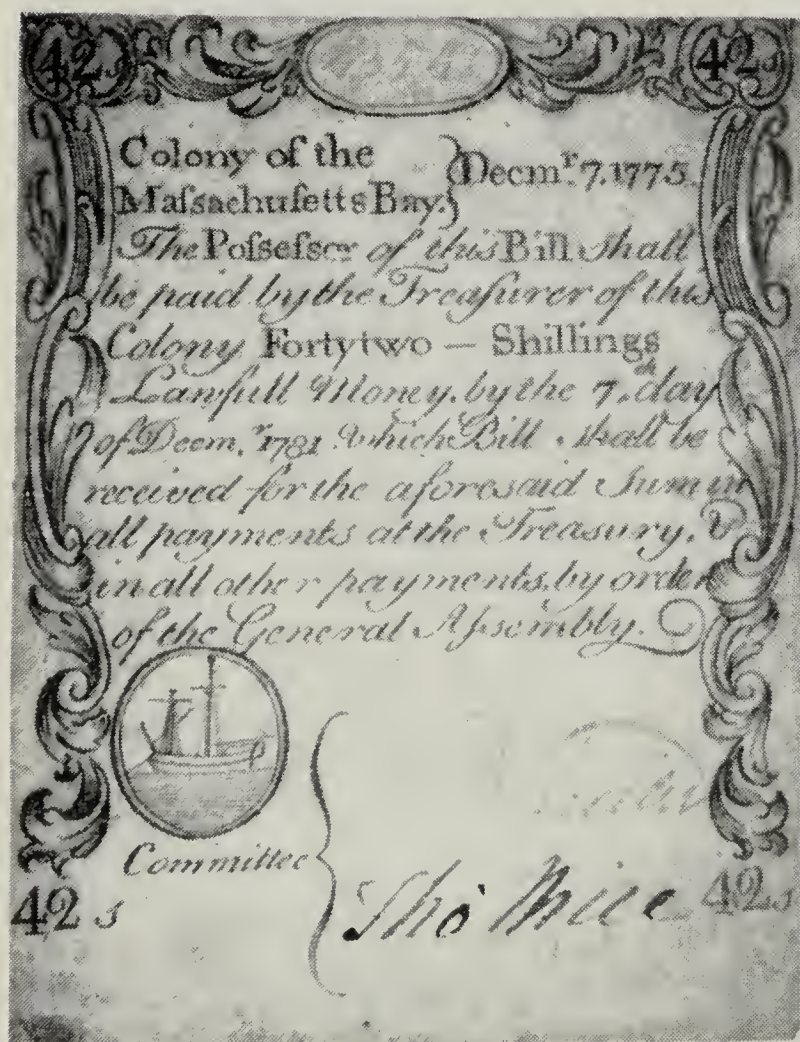 42s 42s
Colony of the
Maſsachuſetts Bay. } Decmr. 7. 1775.
The Poſseſsor of this Bill shall
be paid by the Treaſurer of this
Colony Fortytwo — Shillings
Lawfull Money, by the 7.th day
of Decm.r 1781 which Bill shall be
received for the aforesaid Sum in
all payments at the Treasury, &
in all other payments, by order
of the General Aſsembly.
Committee
42s 42s
Tho